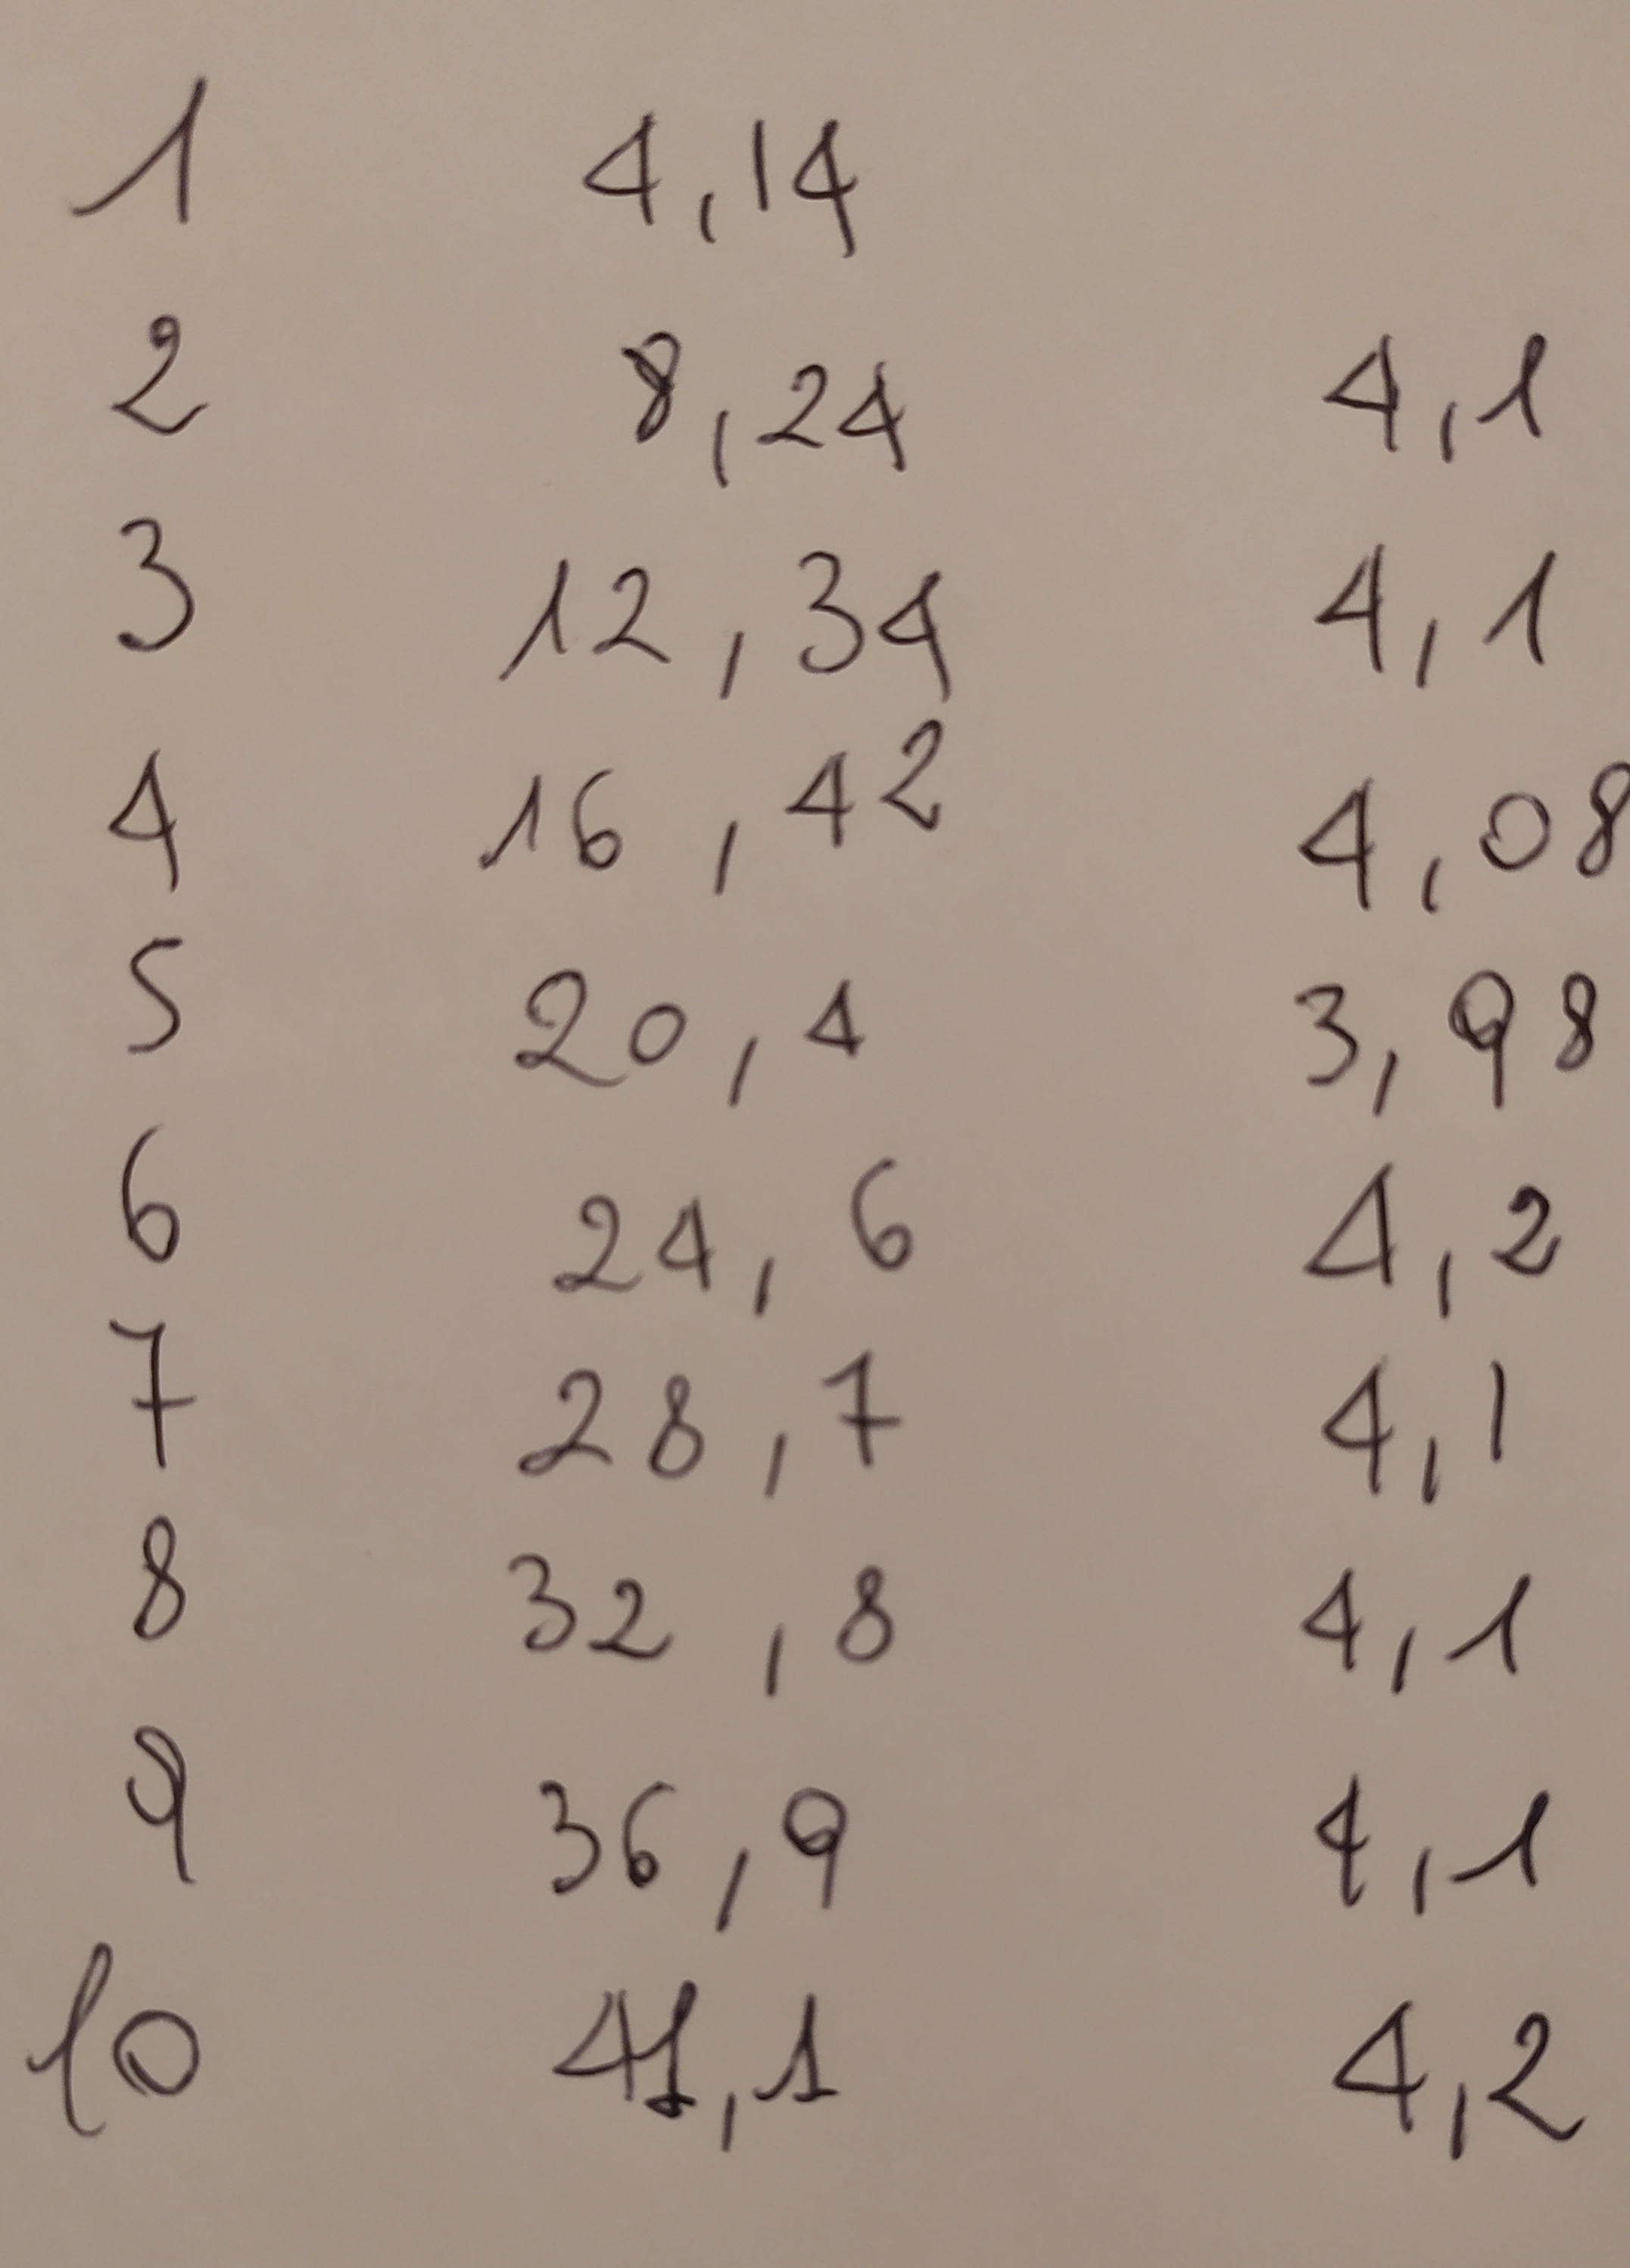 1 4,14
2 8,24 4,1
3 12,34 4,1
4 16,42 4,08
5 20,4 3,98
6 24,6 4,2
7 28,7 4,1
8 32,8 4,1
9 36,9 4,1
10 41,1 4,2